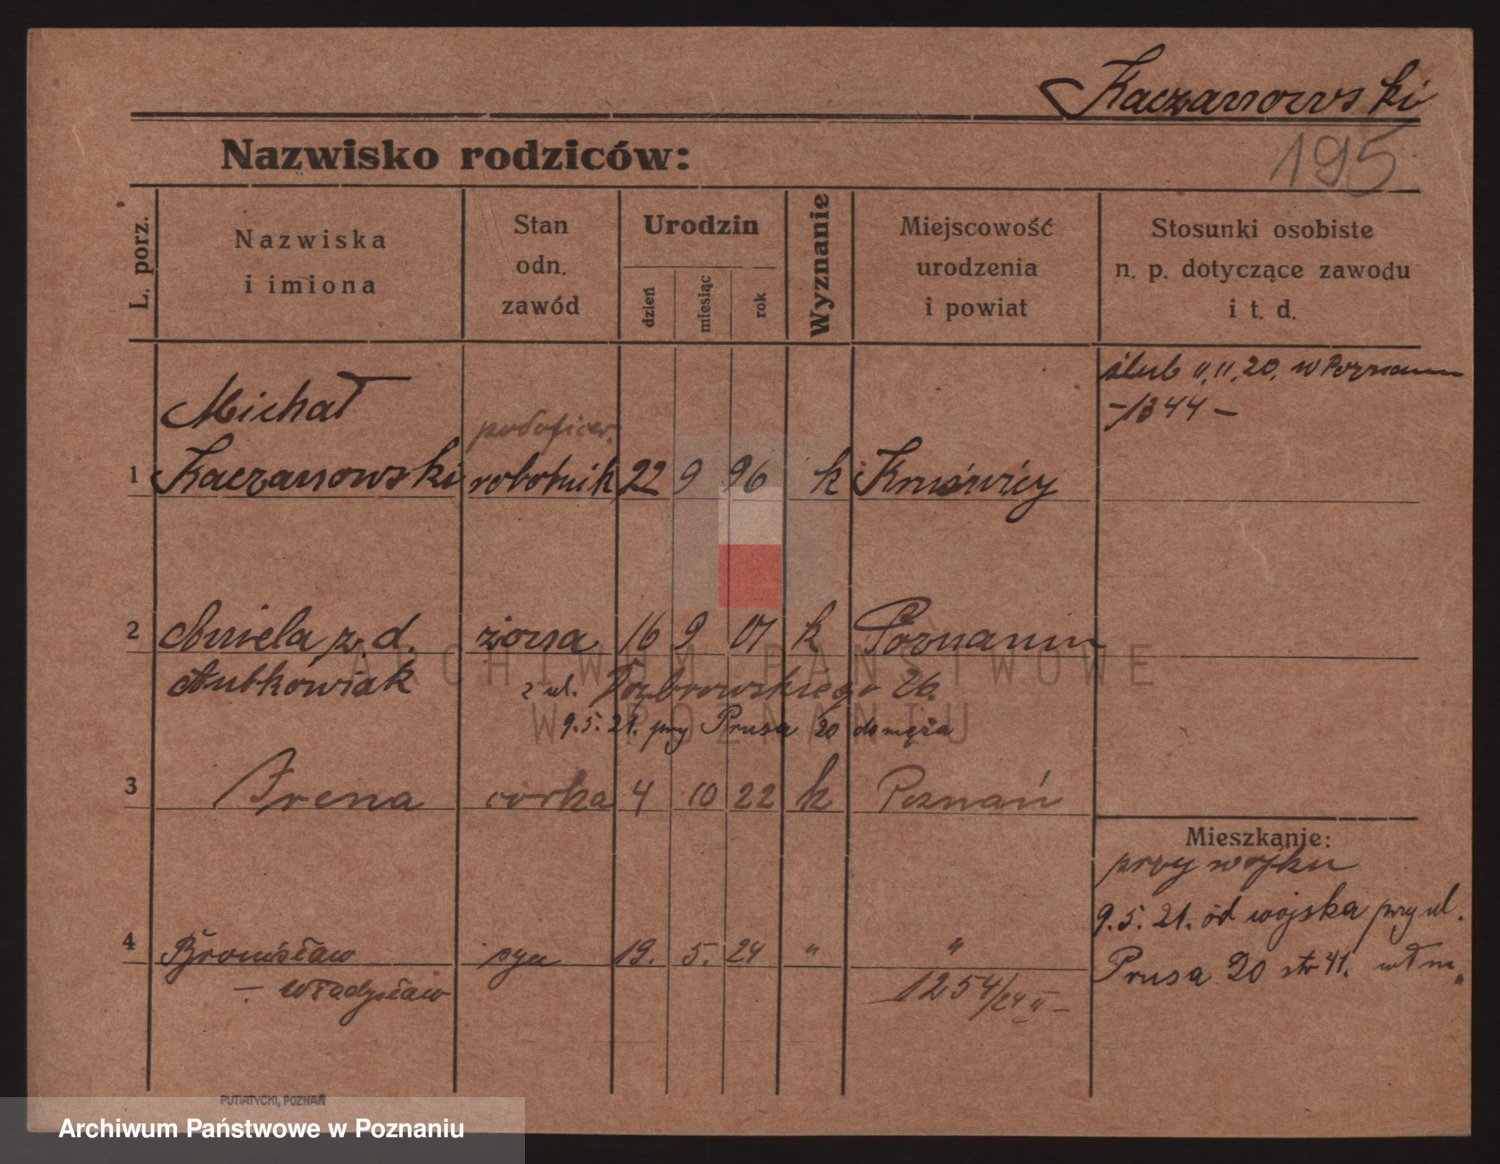 Kaczanowski
195
Nazwisko rodziców:
L. porz.
Nazwiska
i imiona
Stan
odn.
zawód
Urodzin
dzień
miesiąc
rok
Wyznanie
Miejscowość
urodzenia
i powiat
Stosunki osobiste
n. p. dotyczące zawodu
i t. d.
ślub 11.11.20. w Poznaniu
-1344-
Michał
podoficer.
1 Kaczanowski robotnik 22 9 96 k
2 Aniela z. d. żona 16 9 01 k Poznaniu
z ul. Dąbrowskiego 26
9.5.21. przy Prusa 20 do męża
3 Irena córka 4 10 22 k Poznań
Mieszkanie:
przy wojsku
9.5.21. od wojska przy ul.
Prusa 20 str 41.
4 Bronisław syn 19. 5. 24 " "
- Władysław
1254/24 II -
PUTIATYCKI, POZNAŃ
ARCHIWUM PAŃSTWOWE
W POZNANIU
Archiwum Państwowe w Poznaniu